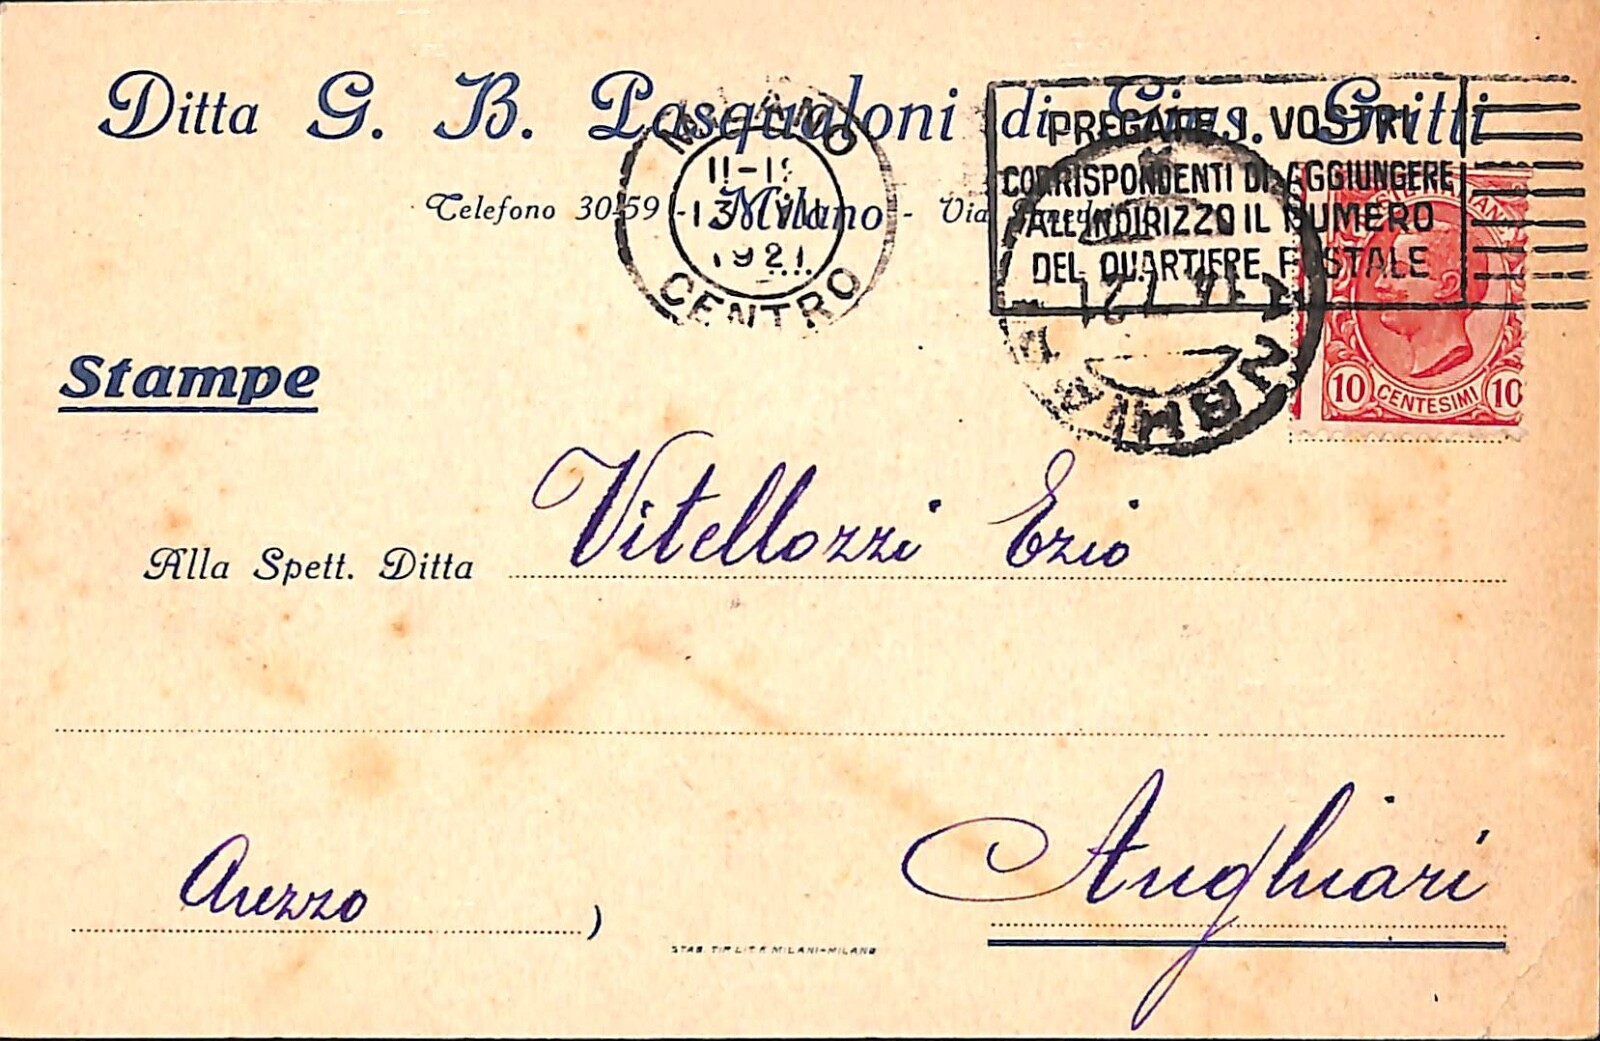 Ditta G. B. Pasqualoni di Gius. Gritti
Telefono 30-59 - Milano - Via
MILANO
11-1
13 VII
1921
CENTRO
PREGATE I VOSTRI
CORRISPONDENTI DI AGGIUNGERE
ALL'INDIRIZZO IL NUMERO
DEL QUARTIERE POSTALE
10 CENTESIMI 10
Stampe
Alla Spett. Ditta Vitellozzi Ezio
Anghiari
Arezzo )
STAB. TIP. LIT. F. MILANI-MILANO